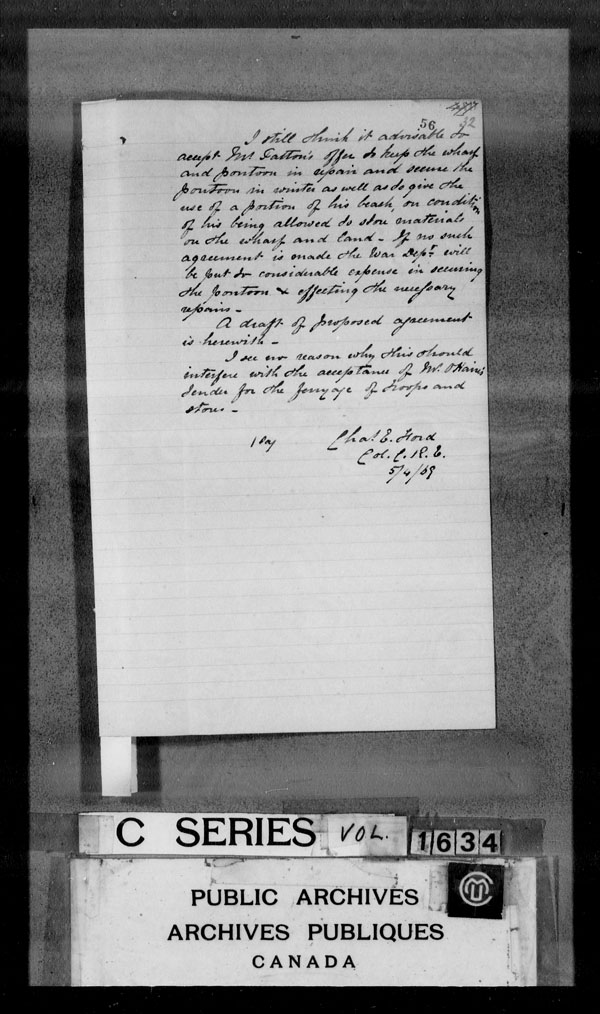 56
32
I still think it advisable to
accept Mr Gaston's offer to keep the wharf
and pontoon in repair and secure the
pontoon in winter as well as to give the
use of a portion of his beach, on condition
of his being allowed to store materials
on the wharf and land - If no such
agreement is made the War Dept. will
be put to considerable expense in securing
the pontoon & effecting the necessary
repairs -
A draft of proposed agreement
is herewith -
I see no reason why this should
interfere with the acceptance of Mr. O'Hara's
tender for the ferryage of troops and
stores -
Chas. E. Ford
Col. C. R. E.
5/4/69
C SERIES VOL. 1634
PUBLIC ARCHIVES
ARCHIVES PUBLIQUES
CANADA